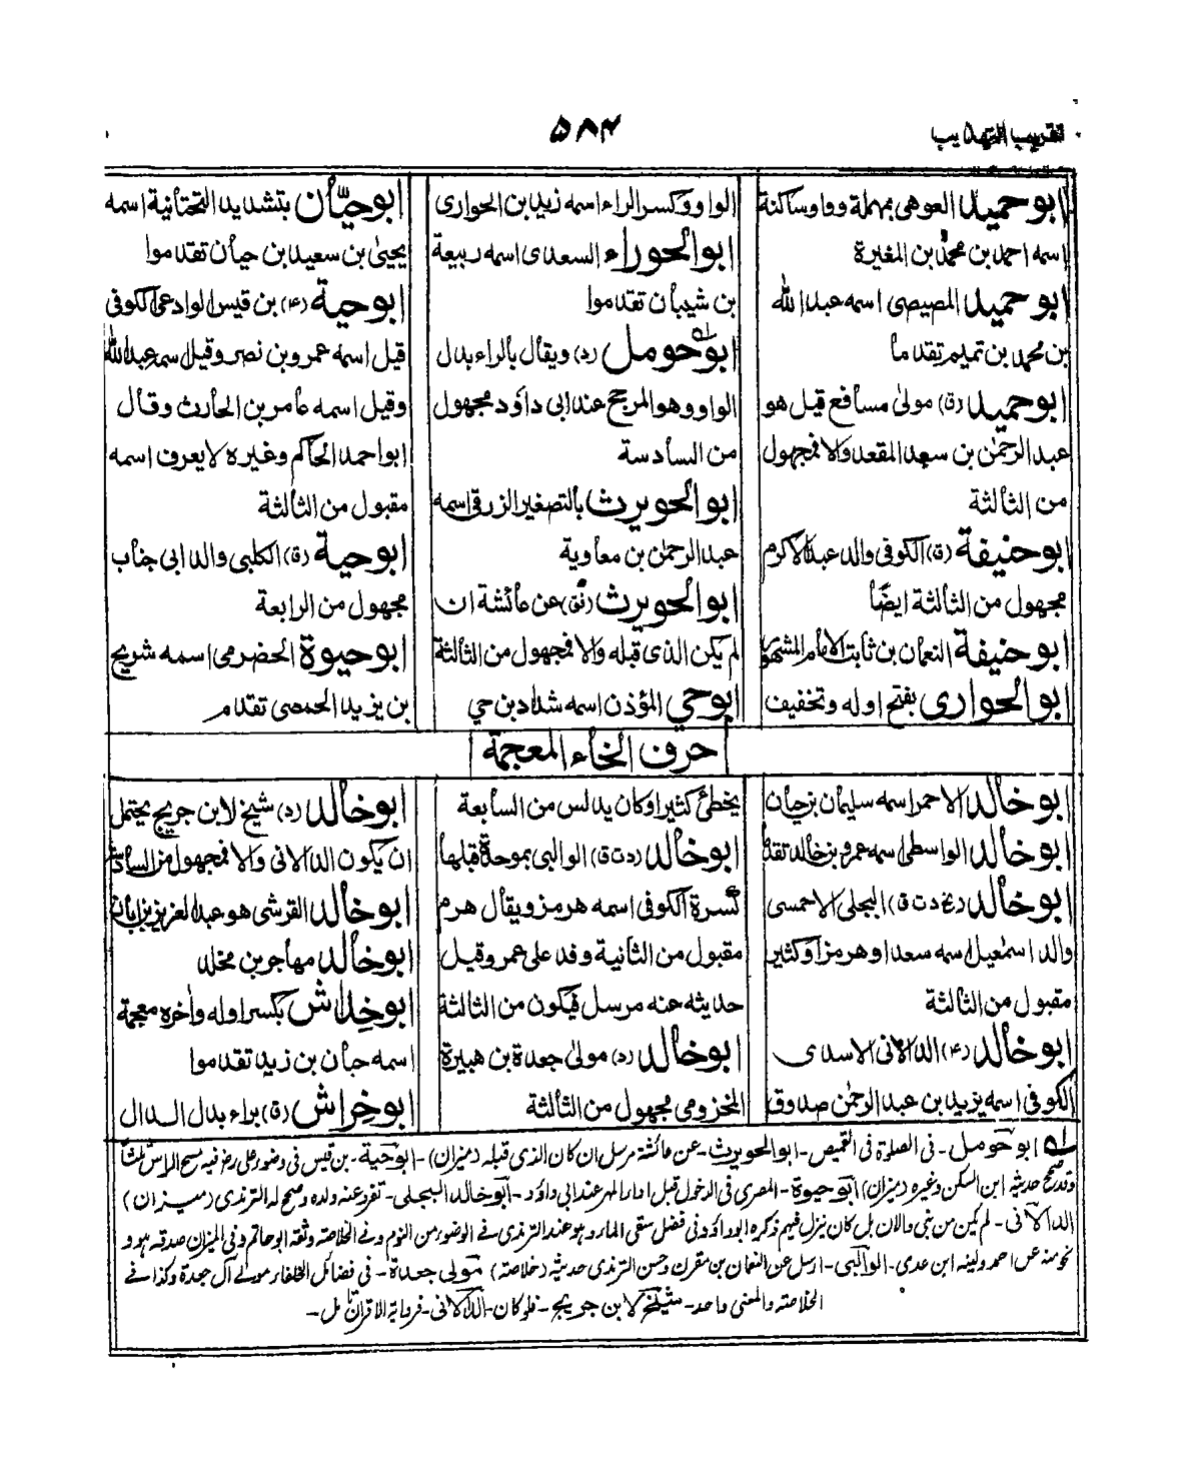 تقریب التهذیب
۵۸۴
ابو حميد العوهى بمهملة وواو ساكنة
اسمه احمد بن محمد بن المغيرة
ابو حميد المصيصى اسمه عبد الله
بن محمد بن تميم تقدما
ابو حميد (ق) مولىٰ مسافع قيل هو
عبد الرحمٰن بن سعد المقعد والا فمجهول
من الثالثة
ابو حنيفة (ق) الكوفى والد عبد الاكرم
مجهول من الثالثة ايضًا
ابو حنيفة النعمان بن ثابت الامام المشهور
ابو الحوارى بفتح اوله وتخفيف
الواو وكسر الراء اسمه زيد بن الحوارى
ابو الحوراء السعدى اسمه ربيعة
بن شيبان تقدموا
ابو حومل (د) ويقال بالراء بدل
الواو وهو المرجح عند ابى داؤد مجهول
من السادسة
ابو الحويرث بالتصغير الزرقى اسمه
عبد الرحمٰن بن معاوية
ابو الحويرث عن عائشة ان
لم يكن الذى قبله والا فمجهول من الثالثة
ابو حي المؤذن اسمه شداد بن حي
ابو حيّان بتشديد التحتانية اسمه
يحيىٰ بن سعيد بن حيان تقدموا
ابو حية (۴) بن قيس الوادعى الكوفى
قيل اسمه عمرو بن نصر وقيل اسمه عبد الله
وقيل اسمه عامر بن الحارث وقال
ابو احمد الحاكم وغيره لا يعرف اسمه
مقبول من الثالثة
ابو حية (ق) الكلبى والد ابى جناب
مجهول من الرابعة
ابو حيوة الحضرمى اسمه شريح
بن يزيد الحمصى تقدم
حرف الخاء المعجمة
ابو خالد الاحمر اسمه سليمان بن حيان
ابو خالد الواسطى اسمه عمرو بن خالد تقدما
ابو خالد (بخ د ت ق) البجلى الاحمسى
والد اسمٰعيل اسمه سعد او هرمز او كثير
مقبول من الثالثة
ابو خالد (۴) الدالانى الاسدى
الكوفى اسمه يزيد بن عبد الرحمٰن صدوق
يخطئ كثيرا وكان يدلس من السابعة
ابو خالد (د ت ق) الوالبى بموحدة قبلها
كسرة الكوفى اسمه هرمز ويقال هرم
مقبول من الثانية وفد على عمر وقيل
حديثه عنه مرسل فيكون من الثالثة
ابو خالد (د) مولىٰ جعدة بن هبيرة
المخزومى مجهول من الثالثة
ابو خالد (د) شيخ لابن جريج يحتمل
ان يكون الدالانى والا فمجهول من السادسة
ابو خالد القرشى هو عبد العزيز بن ابان
ابو خالد مهاجر بن مخلد
ابو خِداش بكسر اوله واٰخره معجمة
اسمه حبان بن زيد تقدموا
ابو خِراش (ق) براء بدل الدال
له ابو حومل - فى الصلوة فى القميص - ابو الحويرث - عن عائشة مرسل ان كان الذى قبله (ميزان) - ابو حية - بن قيس فى وضوء على رض فيه مسح الراس ثلثًا
وقد صحح حديثه ابن السكن وغيره (ميزان) ابو حيوة - المصرى فى الدخول قبل عند ابى داؤد - ابو خالد البجلى - تفرد عنه ولده وصحح له الترمذى (ميزان)
الدالانى - لم يكن من بنى دالان بل كان ينزل فيهم ذكره ابو داؤد فى فضل سقى الماء وهو عند الترمذى فى الوضوء من النوم وفى الخلاصة وثقه ابو حاتم وفى الميزان صدقه هو و
نحو منه عن احمد ولينه ابن عدى - الوالبى - ارسل عن النعمان بن مقرن وحسن الترمذى حديثه (خلاصة) مولى جعدة - فى فضائل الخلفاء مولى آل جعدة وكذا فى
الخلاصة والمعنى واحد - شيخ لابن جريج - فلو كان - الدالانى - فرواية الاقران تأمل -